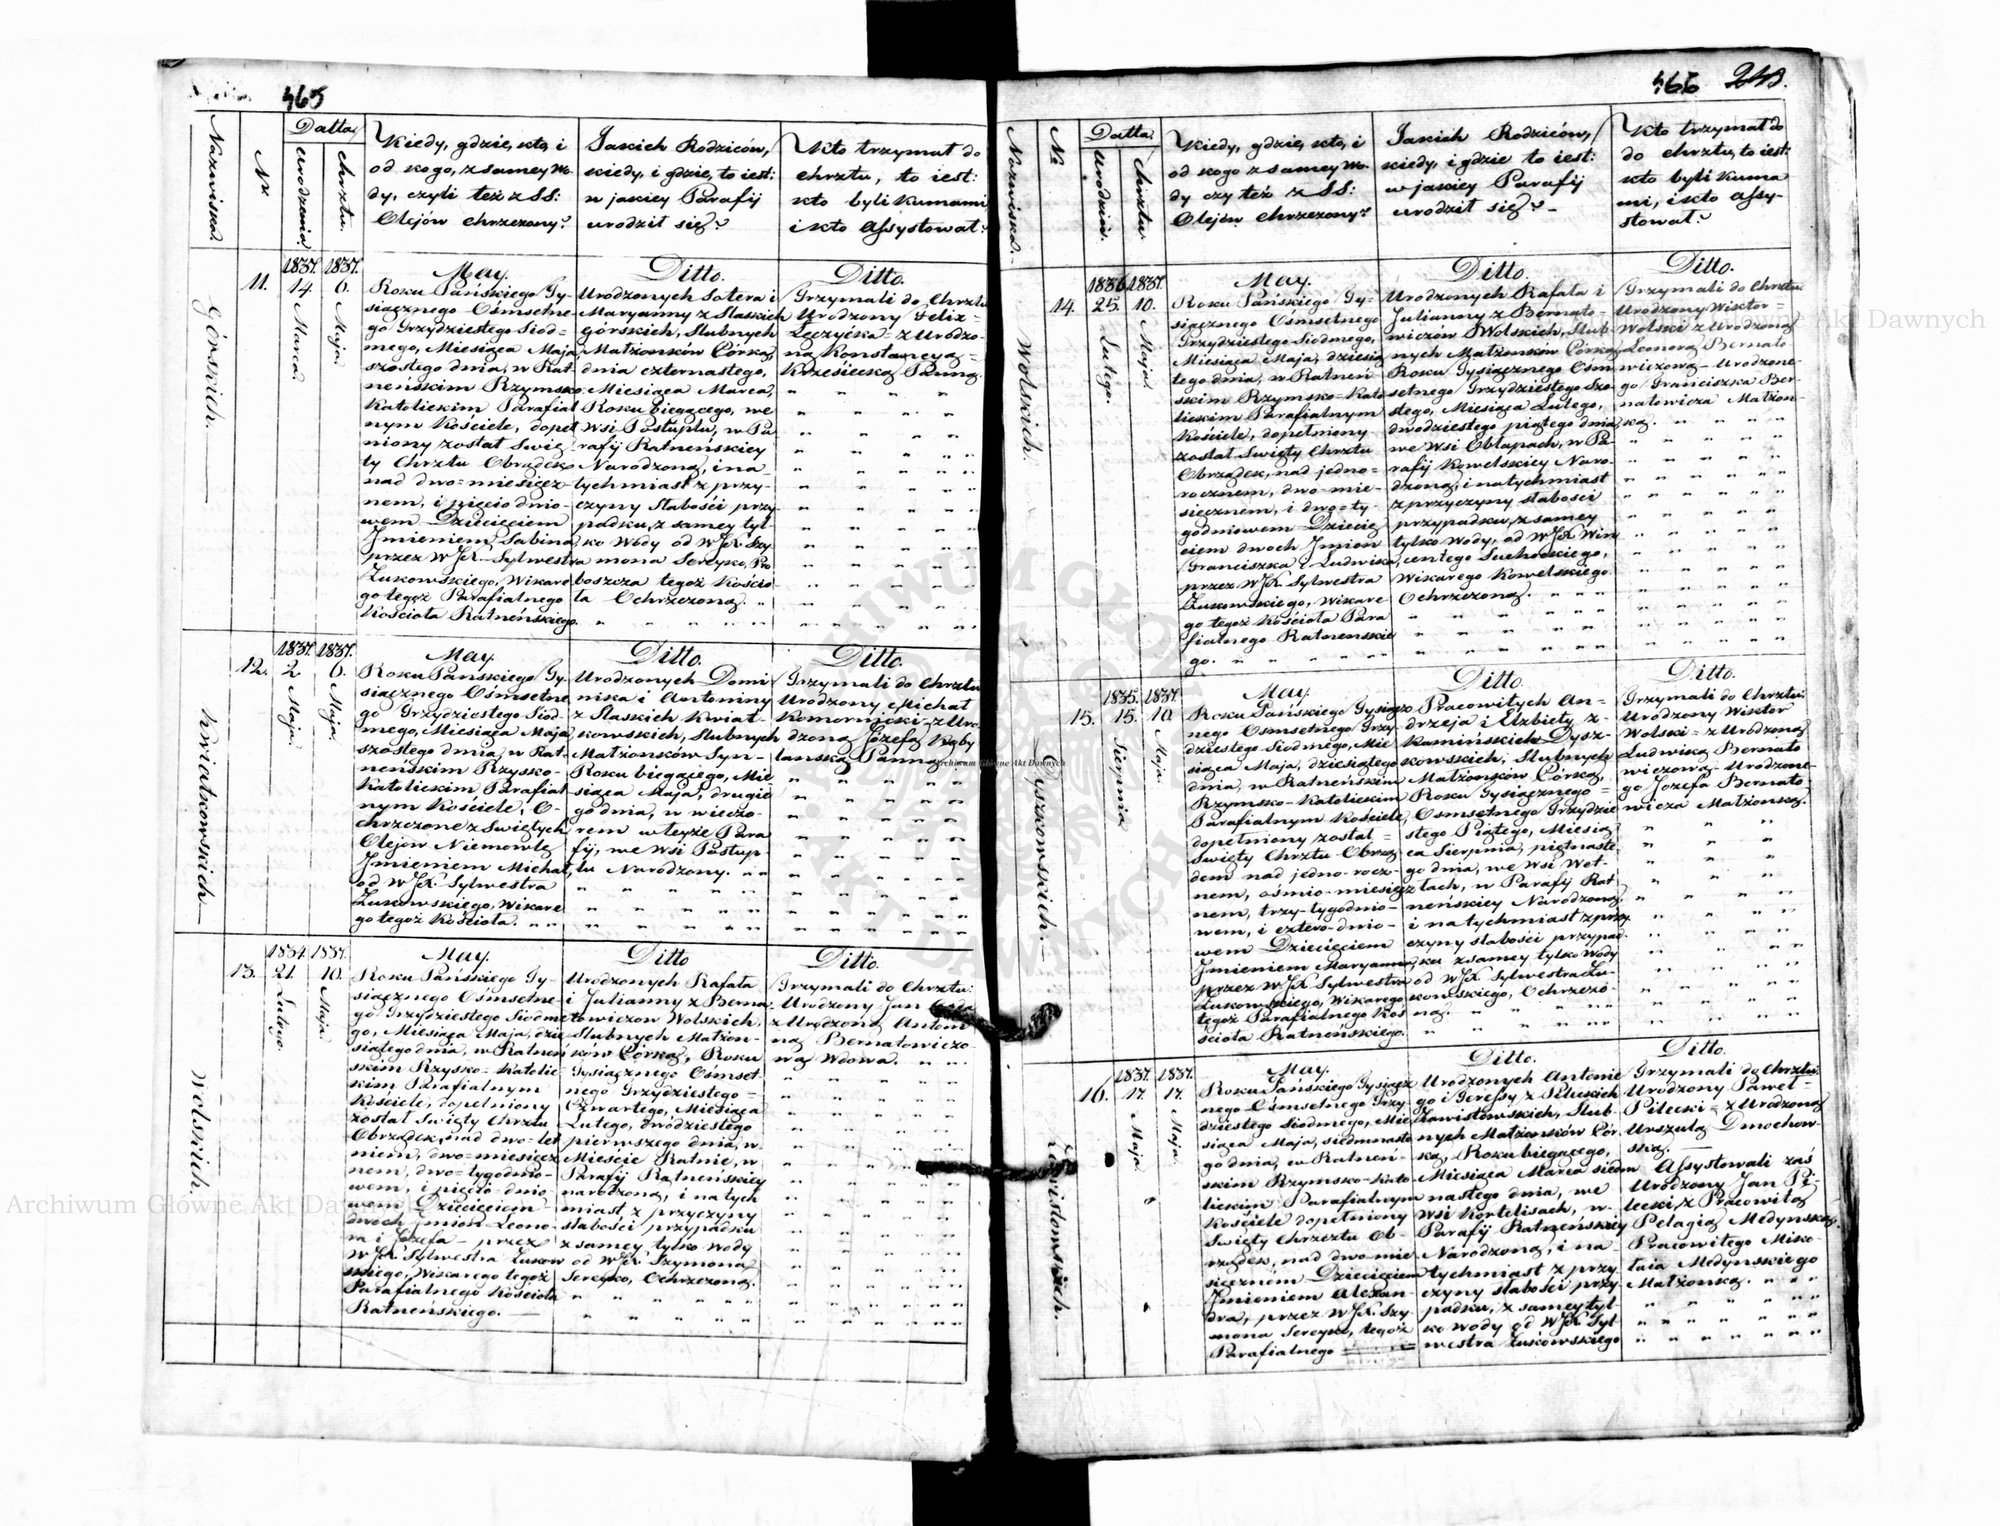 465
Nazwiska.
Nr
Datta.
urodzenia.
chrztu.
Kiedy, gdzie, kto, i
od kogo, z samey Wo-
dy, czyli też z SS:
Olejów chrzczony?
Jakich Rodziców,
kiedy, i gdzie, to iest:
w jakiey Parafij
urodził się?
Kto trzymał do
chrztu, to iest:
kto byli kumami,
i kto Assystował?
Górskich.
11.
1837.
14.
Marca.
1837.
6.
Maja.
May.
Roku Pańskiego Ty-
siącznego Ośmsetne-
go Trzydziestego Siód-
mego, Miesiąca Maja
szóstego dnia, w Rat-
neńskim Rzymsko-
Katolickim Parafial
nym Kościele, dopeł
niony został Swię
ty Chrztu Obrządek
nad dwo-miesięcz-
nem, i pięcio dnio-
wem Dziecięciem
Imieniem Sabina,
przez WJX. Sylwestra
Żukowskiego, Wikare
go tegoż Parafialnego
Kościoła Ratneńskiego.
Ditto.
Urodzonych Sotera i
Maryanny z Slaskich
Górskich, Slubnych
Małżonków Córką,
dnia czternastego,
Miesiąca Marca,
Roku biegącego, we
Wsi Postuplu, w Pa
rafij Ratneńskiey
Narodzoną, i na-
tychmiast z przy-
czyny słabości przy
padku, z samey tyl-
ko Wody od WJX. Szy
mona Sereyko, Pro
boszcza tegoż Kościo-
ła Ochrzczoną.
Ditto.
Trzymali do Chrztu
Urodzony Felix
Łęczycka z Urodzo-
ną Konstancyą
Krzesiecką Panną.
Kwiatkowskich
12.
1837.
2
Maja.
1837.
6.
Maja.
May.
Roku Pańskiego Ty-
siącznego Ośmsetne
go Trzydziestego Siód-
mego, Miesiąca Maja
szóstego dnia, w Rat-
neńskim Rzysko-
Katolickim Parafial
nym Kościele, O-
chrzczone z Swiętych
Olejów Niemowlę
Imieniem Michał,
od WJX. Sylwestra
Żukowskiego, Wikare
go tegoż Kościoła.
Ditto.
Urodzonych Domi
nika i Antoniny
z Slaskich Kwiat-
kowskich, Slubnych
Małżonków Syn-
Roku biegącego, Mie
siąca Maja, drugie
go dnia, w wieczo-
rem w teyże Para
fij, we Wsi Postup-
lu Narodzony.
Ditto.
Trzymali do Chrztu
Urodzony Michał
Komornicki z Uro-
dzoną Józefą Koby
lanską Panną
Wolskich
13.
1834.
21.
Lutego.
1837.
10.
Maja.
May.
Roku Pańskiego Ty-
siącznego Ośmsetne
go Trzydziestego Siódme
go, Miesiąca Maja, dzie
siątego dnia, w Ratneń
skim Rzysko-Katolic-
kim Parafialnym
Kościele, dopełniony
został Swięty Chrztu
Obrządek, nad dwo-let
niem, dwo-miesięcz
nem, dwo-tygodnio-
wem, i pięcio-dnio
wem Dziecięciem
dwoch Imion Leono-
ra i Józefa - przez
WJX. Sylwestra Żukow
skiego, Wikarego tegoż
Parafialnego Kościoła
Ratneńskiego.
Ditto
Urodzonych Rafała
i Julianny z Berna
towiczow Wolskich,
Slubnych Małżon-
ków Córką, Roku
Tysiącznego Ośmset-
nego Trzydziestego
Czwartego, Miesiąca
Lutego, dwódziestego
pierwszego dnia, w
Mieście Ratnie, w
Parafij Ratneńskiey
narodzoną, i na tych
miast z przyczyny
słabości przypadku
z samey tylko Wody
od WJX. Szymona
Sereyko, Ochrzczoną.
Ditto.
Trzymali do Chrztu:
Urodzony Jan
z Urodzoną Antoni
ną Bernatowiczo
wą Wdową.
466
243.
Nazwiska.
Nr
Datta.
urodzin.
chrztu.
Kiedy, gdzie, kto, i
od kogo z samey Wo-
dy czy też z SS:
Olejów chrzczony?
Jakich Rodziców,
kiedy, i gdzie to iest:
w jakiey Parafij
urodził się?
Kto trzymał do
do chrztu, to iest:
kto byli kuma
mi, i kto assy-
stował?
Wolskich.
14.
1836.
25.
Lutego.
1837.
10.
Maja.
May.
Roku Pańskiego Ty-
siącznego Ośmsetnego
Trzydziestego Siódmego,
Miesiąca Maja, dziesią
tego dnia, w Ratneń
skim Rzymsko-Kato
lickim Parafialnym
Kościele, dopełniony
został Swięty Chrztu
Obrządek, nad jedno-
rocznem, dwo-mie-
sięcznem, i dwo-ty-
godniowem Dziecię
ciem dwoch Imion
Franciszka i Ludwika,
przez WJX. Sylwestra
Żukowskiego, Wikare
go tegoż Kościoła Para
fialnego Ratnenskie
go.
Ditto.
Urodzonych Rafała i
Julianny z Bernato-
wiczów Wolskich, Slub
nych Małżonków Córką,
Roku Tysiącznego Ośm
setnego Trzydziestego Szó
stego, Miesiąca Lutego,
dwodziestego piątego dnia,
we Wsi Obłapach, w Pa-
rafij Kowelskiey Naro-
dzoną, i natychmiast
z przyczyny słabości
przypadku, z samey
tylko Wody, od WJX Win
centego Suchockiego,
Wikarego Kowelskiego
Ochrzczoną.
Ditto.
Trzymali do Chrztu:
Urodzony Wiktor
Wolski z Urodzoną
Leonorą Bernato
wiczową - Urodzone-
go Franciszka Ber-
natowicza Małżon-
ką.
Dyszkowskich.
15.
1835.
15.
Sierpnia
1837.
10.
Maja.
May.
Roku Pańskiego Tysiącz
nego Ośmsetnego Trzy
dziestego Siódmego, Mie
siąca Maja, dziesiątego
dnia, w Ratneńskim
Rzymsko-Katolickim
Parafialnym Kościele,
dopełniony został
Swięty Chrztu Obrzą
dem nad jedno-rocz-
nem, ośmio-miesięcz
nem, trzy-tygodnio-
wem, i cztero-dnio-
wem Dziecięciem
Imieniem Maryanna,
przez WJX. Sylwestra
Żukowskiego, Wikarego
tegoż Parafialnego Ko-
ścioła Ratneńskiego.
Ditto.
Pracowitych An-
drzeja i Elżbiety z
Kamińskich Dysz-
kowskich, Slubnych
Małżonków Córką,
Roku Tysiącznego
Ośmsetnego Trzydzie
stego Piątego, Miesią
ca Sierpnia, piętnaste
go dnia, we Wsi Wet-
lach, w Parafij Rat
neńskiey Narodzoną
i natychmiast z przy
czyny słabości przypad
ku z samey tylko Wody
od WJX. Sylwestra Żu-
kowskiego, Ochrzczo-
ną.
Ditto.
Trzymali do Chrztu:
Urodzony Wiktor
Wolski z Urodzoną
Ludwiką Bernato
wiczową - Urodzone-
go Józefa Bernato-
wicza Małżonką.
Zawistowskich.
16.
1837.
17.
Maja
1837.
17.
Maja.
May.
Roku Pańskiego Tysiącz
nego Ośmsetnego Trzy
dziestego Siódmego, Mie
siąca Maja, siedmnaste
go dnia, w Ratneń-
skim Rzymsko-Kato
lickim Parafialnym
Kościele dopełniony
Swięty Chrzztu Ob-
rządek, nad dwo mie
sięcznem Dziecięciem
Imieniem Alexan-
dra, przez WJX. Szy
mona Sereyko, tegoż
Parafialnego
Ditto.
Urodzonych Antonie
go i Teressy z Pileckich
Zawistowskich, Slub-
nych Małżonków Cór
ką, Roku biegącego,
Miesiąca Marca siedm
nastego dnia, we
Wsi Kortelisach, w
Parafij Ratneńskiey
Narodzoną, i na-
tychmiast z przy
czyny słabości przy
padku, z samey tyl-
ko Wody od WJX Syl
westra Żukowskiego
Ditto.
Trzymali do Chrztu:
Urodzony Paweł
Pilecki z Urodzoną
Urszulą Dmochow-
ską.
Assystowali zaś
Urodzony Jan Pi-
lecki, z Pracowitą
Pelagią Medynską,
Pracowitego Miko-
łaia Medynskiego
Małżonką.
Archiwum Główne Akt Dawnych